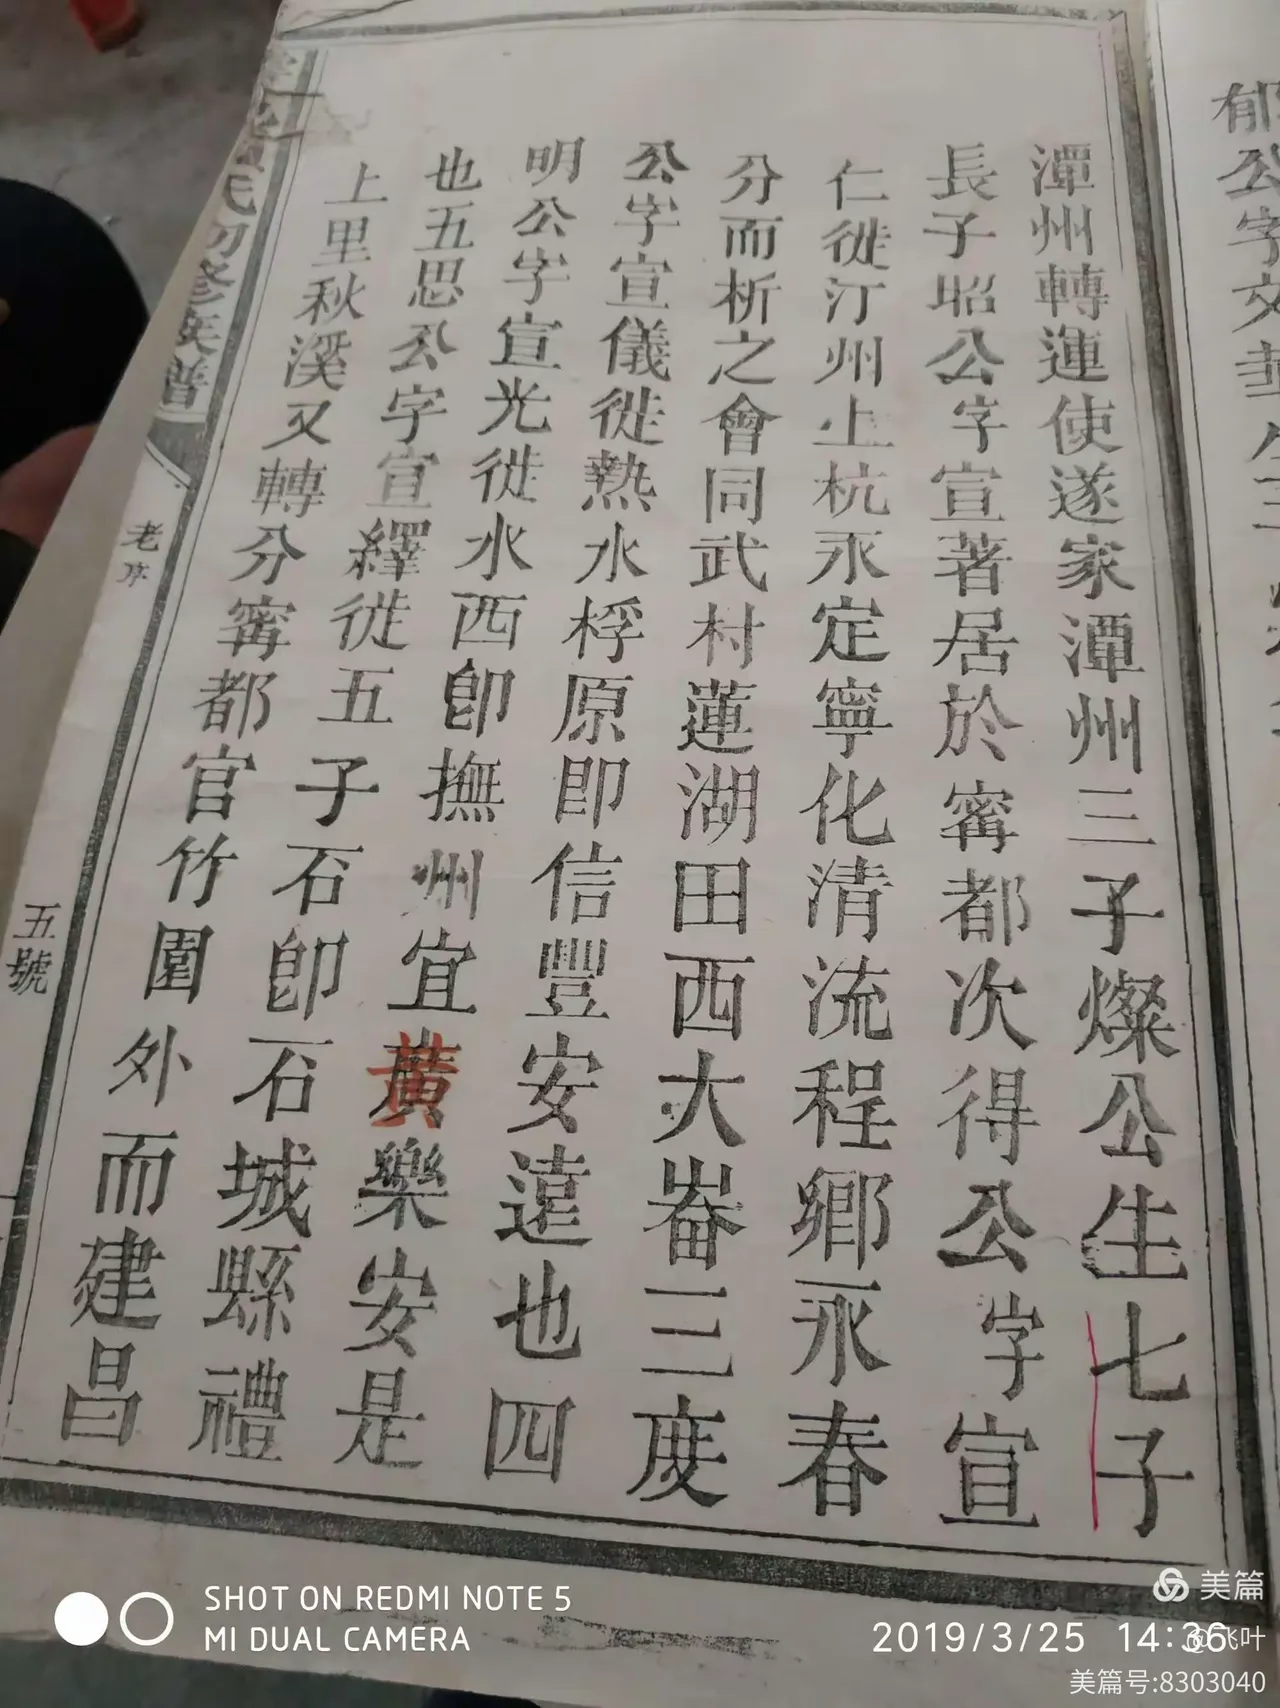 郁公字文
潭州轉運使遂家潭州三子燦公生七子
長子昭公字宣著居於寗都次得公字宣
仁徙汀州上杭永定寧化清流程鄉永春
分而析之會同武村蓮湖田西大畬三度
公字宣儀徙熱水桴原即信豐安遠也四
明公字宣光徙水西即撫州宜黃樂安是
也五思公字宣繹徙五子石即石城縣禮
上里秋溪又轉分寗都官竹園外而建昌
氏初修族譜
老序
五號
SHOT ON REDMI NOTE 5
MI DUAL CAMERA
美篇
2019/3/25 14:36
@飞叶
美篇号:8303040